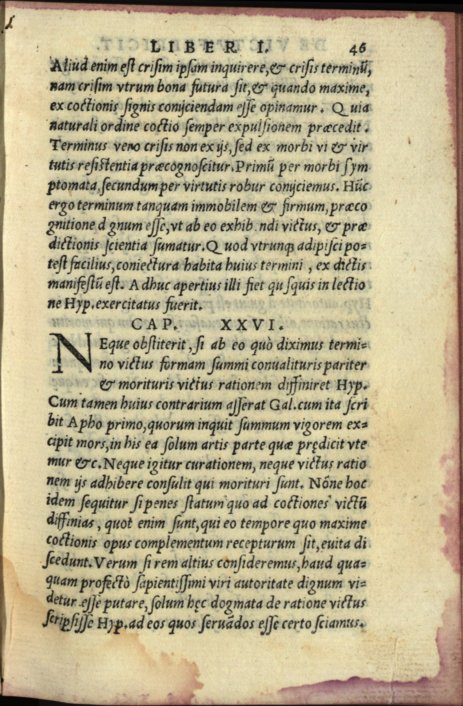 LIBER I. 46
Aliud enim est crisim ipsam inquirere,& crisis terminū,
nam crisim vtrum bona futura sit,& quando maxime,
ex coctionis signis conyciendam esse opinamur. Quia
naturali ordine coctio semper expulsionem præcedit.
Terminus vero crisis non ex ijs, sed ex morbi vi & vir
tutis resistentia præcognoscitur. Primū per morbi sym
ptomata, secundum per virtutis robur conyciemus. Hūc
ergo terminum tanquam immobilem & firmum, præco
gnitione d gnum esse, vt ab eo exhib ndi victus, & præ
dictionis scientia sumatur. Quod vtrunq; adipisci po=
test facilius, coniectura habita huius termini, ex dictis
manifestū est. Adhuc apertius illi fiet qu squis in lectio
ne Hyp. exercitatus fuerit.
CAP. XXVI.
NEque obstiterit, si ab eo quò diximus termi=
no victus formam summi conualituris pariter
& morituris victus rationem diffiniret Hyp.
Cum tamen huius contrarium asserat Gal. cum ita scri
bit Apho primo, quorum inquit summum vigorem ex=
cipit mors, in his ea solum artis parte quæ prędicit vte
mur &c. Neque igitur curationem, neque victus ratio
nem ijs adhibere consulit qui morituri sunt. Nónne hoc
idem sequitur si penes statum quo ad coctiones victū
diffinias, quot enim sunt, qui eo tempore quo maxime
coctionis opus complementum recepturum sit, euita di
scedunt. Verum si rem altius consideremus, haud qua=
quam profectò sapientissimi viri autoritate dignum vi=
detur esse putare, solum hęc dogmata de ratione victus
scripsisse Hyp. ad eos quos seruādos esse certo sciamus.